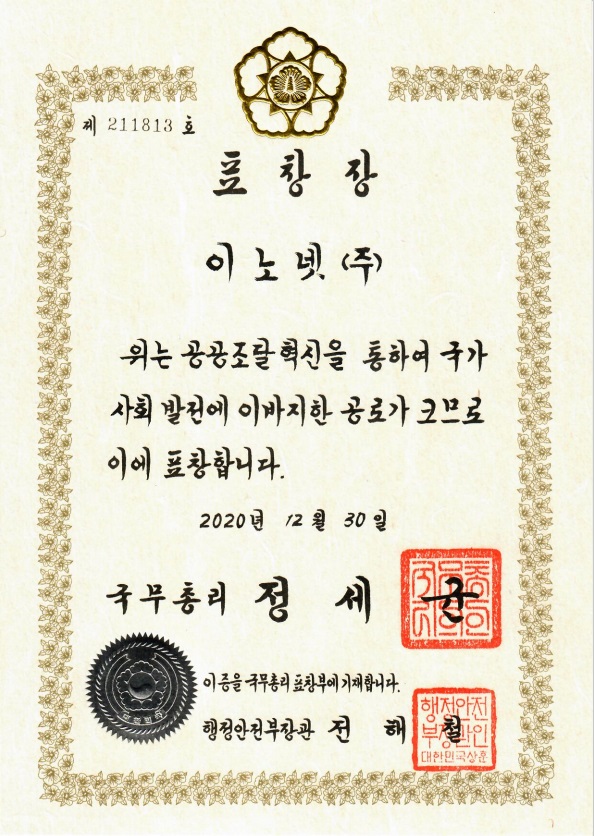 제 211813 호
표 창 장
이 노 넷 (주)
위는 공공조달 혁신을 통하여 국가
사회 발전에 이바지한 공로가 크므로
이에 표창합니다.
2020년 12월 30일
국무총리 정 세 균
이 증을 국무총리 표창부에 기재합니다.
행정안전부장관 전 해 철
행정안전
부장관인
대한민국상훈